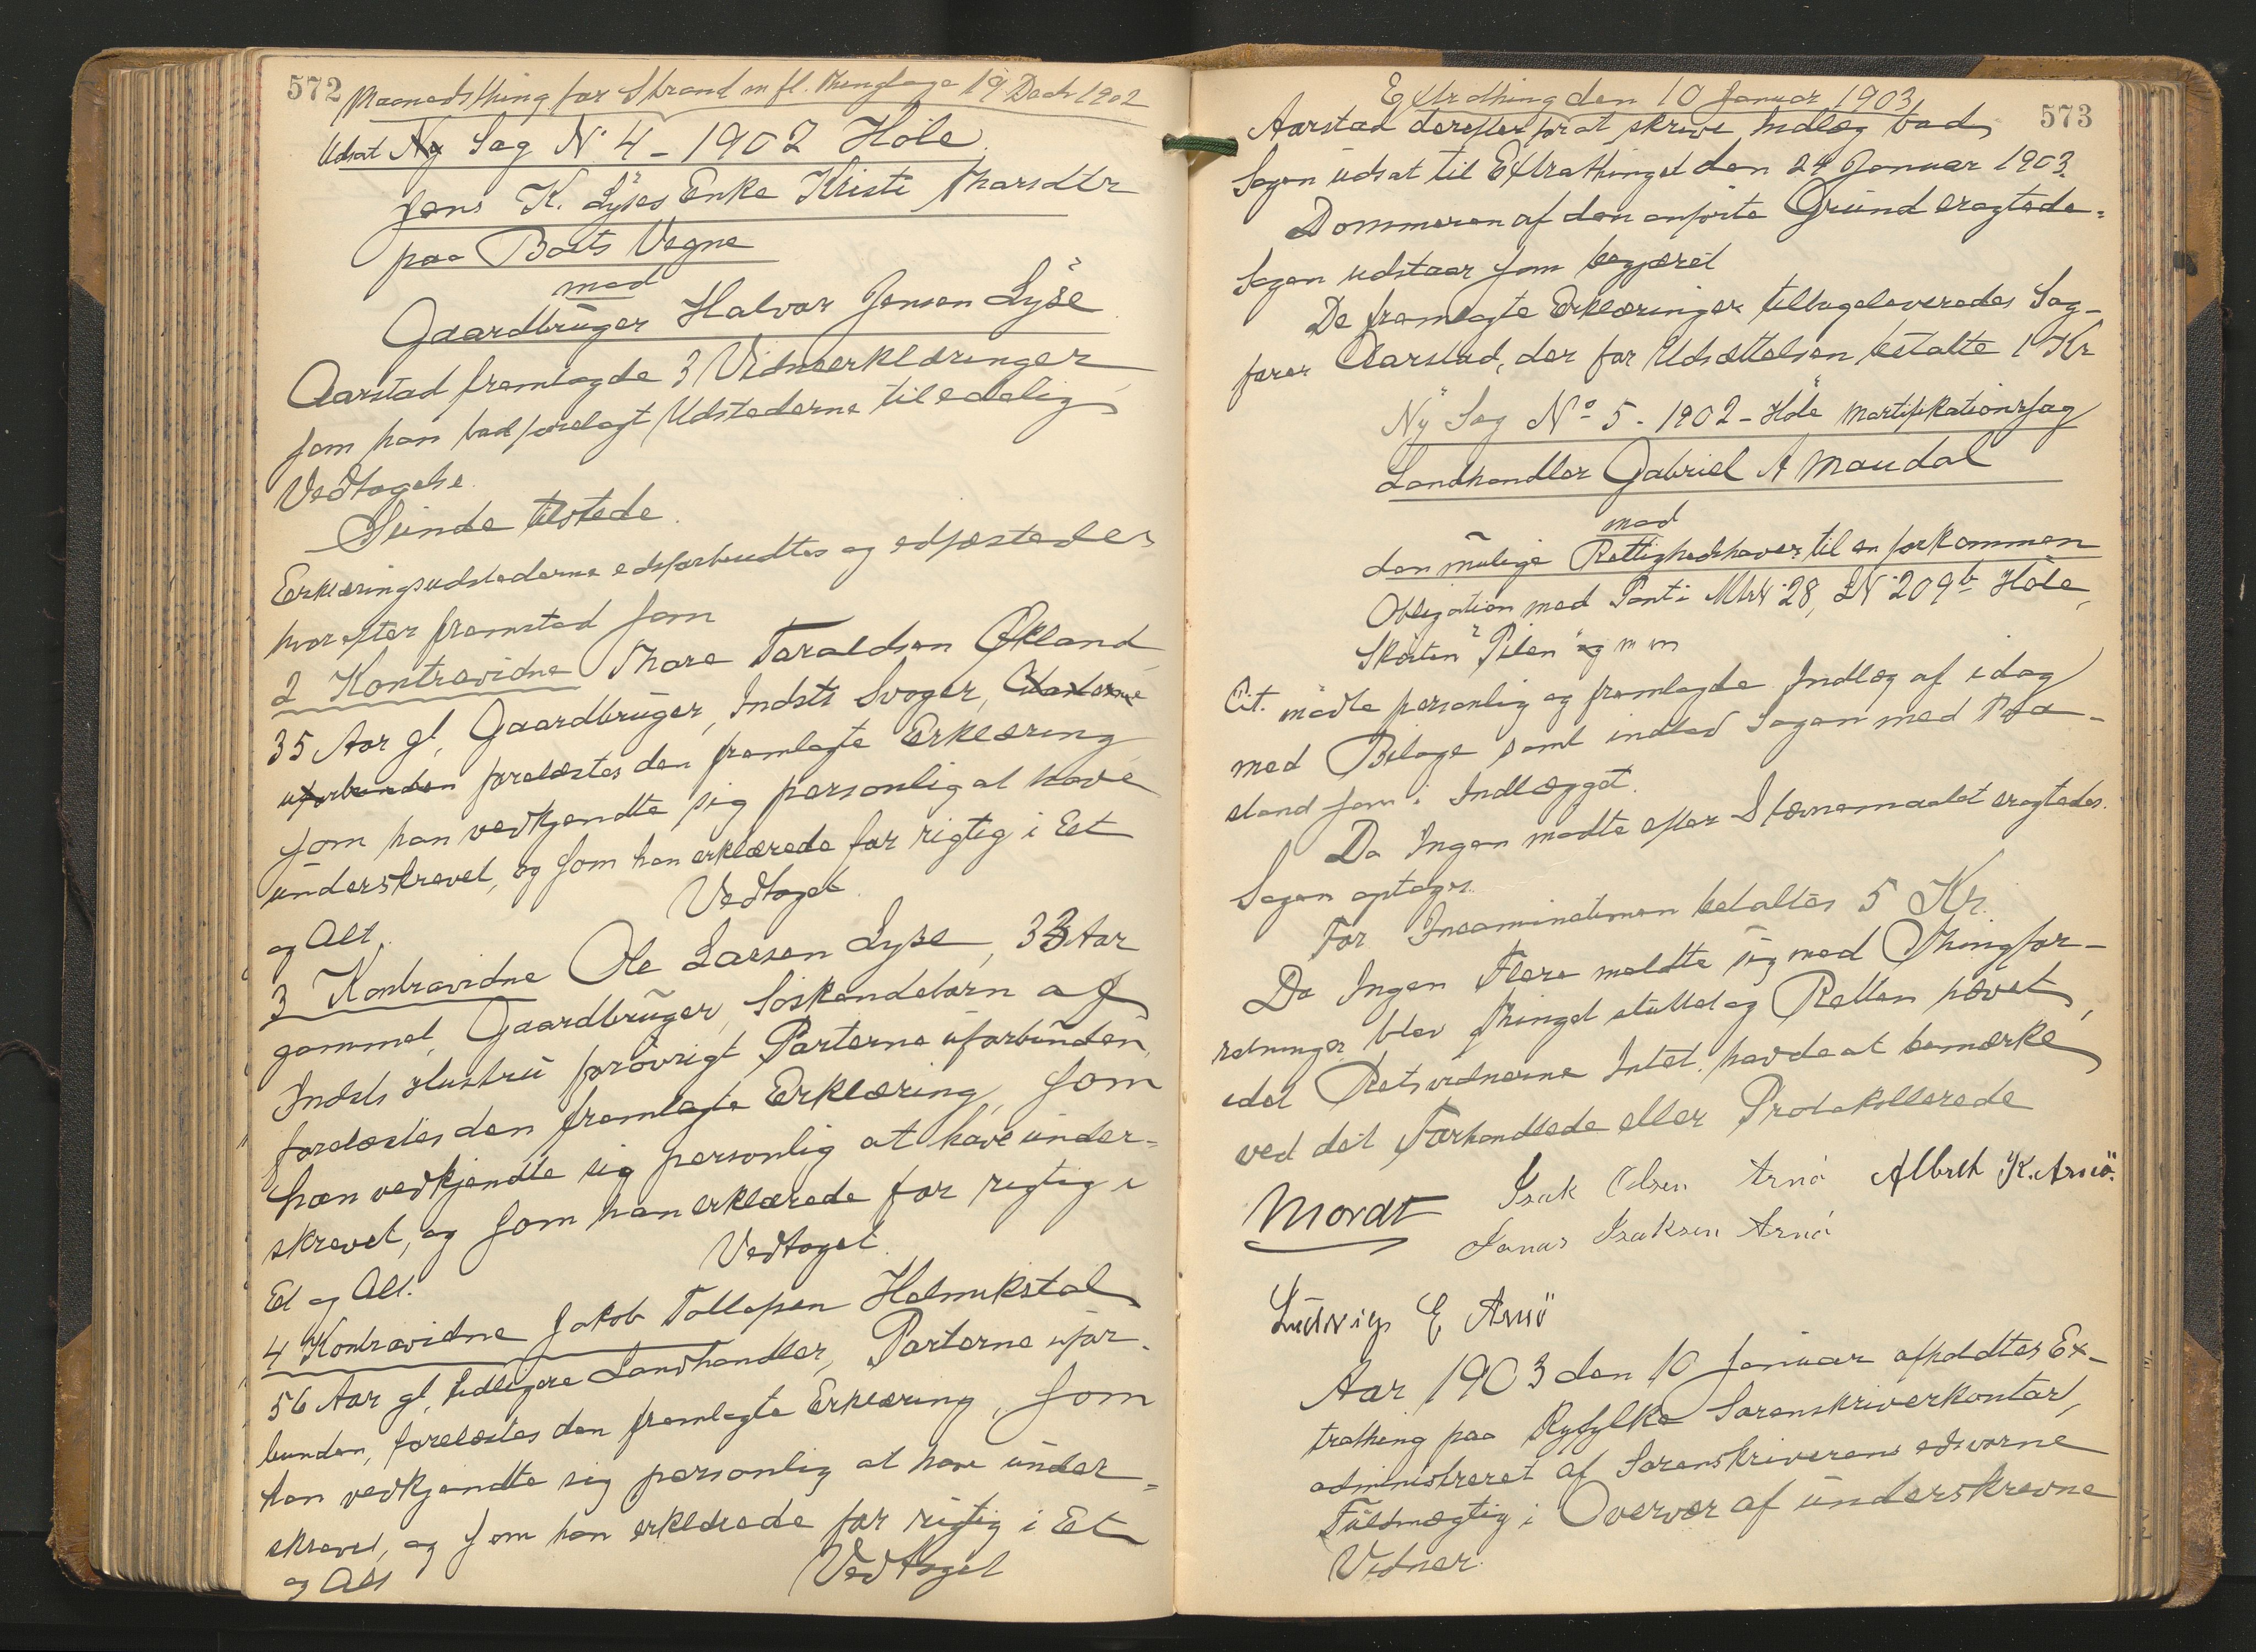 572 Maanedsthing for Strand m fl. thinglage 19 Decb 1902
Udsat Ny Sag N. 4 - 1902 Höle.
Jens K. Lyses Enke Kristi Tharsdtr
paa Boets Vegne
mod
Gaardbruger Halvor Jensen Lyse.
Aarstad fremlagde 3 Vidneerklæringer
som han bad forelagt Udstederne til edelig
Vedtagelse.
Sunde tilstede.
Erklæringsudstederne edsforbendtes og edfæstedes
hvorefter fremstod som
2 Kontravidne Thore Taraldsen Økland
35 Aar gl, Gaardbruger, Indsts Svoger,
uforbunden forelæstes den fremlagte Erklæring
som han vedkjendte sig personlig at have
underskrevet, og som han erklærede for rigtig i Et
og Alt. Vedtaget
3 Kontravidne Ole Larsen Lyse, 33 Aar
gammel, Gaardbruger, Söskendebarn af
Indsts Hustru forövrigt Parterne uforbunden,
forelæstes den fremlagte Erklæring, som
han vedkjendte sig personlig at have under=
skrevet, og som han erklærede for rigtig i
Et og Alt. Vedtaget.
4 Kontravidne Jakob Tollefsen Helmikstøl
56 Aar gl, tidligere Landhandler, Parterne ufor-
bunden, forelæstes den fremlagte Erklæring, som
han vedkjendte sig personlig at have under=
skrevet, og som han erklærede for rigtig i Et
og Alt Vedtaget
Extrathing den 10 Januar 1903. 573
Aarstad derefter for at skrive Indlæg bad
Sagen udsat til Extrathinget den 24 Januar 1903.
Dommeren af den anförte Grund eragtede:
Sagen udstaar som begjæret
De fremlagte Erklæringer tilbageleveredes Sag-
förer Aarstad, der for Udsættelsen betalte 1 Kr
Ny Sag No 5 - 1902 - Höle Mortifikationssag
Landhandler Gabriel A Maudal
mod
den mulige Rettighedshaver til en forkommen
Obligation med Pant i MtrN. 28, LN. 209b Höle,
Sköiten "Pilen" og m m
Cit. mödte personlig og fremlagde Indlæg af idag
med Bilage samt indlod Sagen med Paa-
stand som i Indlægget.
Da Ingen mödte efter Stævnemaalet eragtedes:
Sagen optages.
For Incaminationen betaltes 5 Kr.
Da Ingen Flere meldte sig med Thingfor-
retninger blev Thinget sluttet og Retten hævet,
idet Retsvidnerne Intet havde at bemærke
ved det Forhandlede eller Protokollerede
Mordt Isak Olsen Arnö Albrt K. Arnö.
Jonas Isaksen Arnö
Ludvig E Arnö
Aar 1903 den 10 Januar afholdtes Ex-
trathing paa Ryfylke Sorenskriverkontor,
administreret af Sorenskriverens edsvorne
Fuldmægtig i Overvær af underskrevne
Vidner.